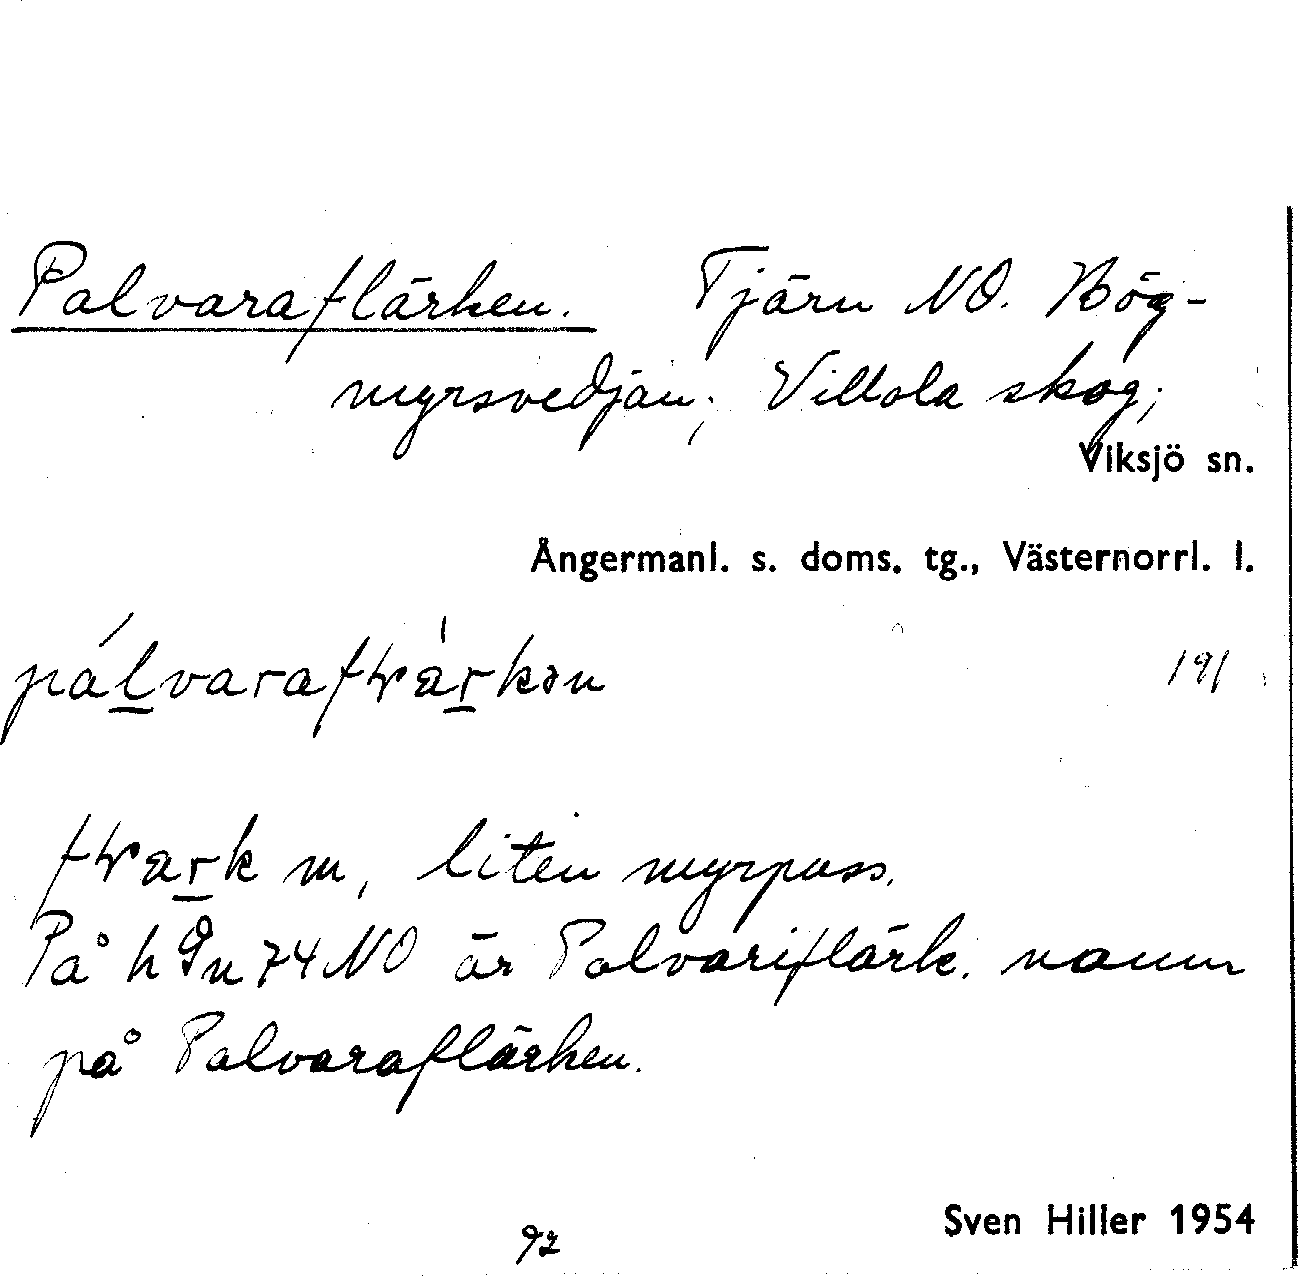 Palvaraflärken. Tjärn NO. Hög-
myrsvedjan; Villola skog;
Viksjö sn.
Ångermanl. s. doms. tg., Västernorrl. l.
191
m, liten myrpuss.
På är Palvariflärk. namn
på Palvaraflärken.
92
Sven Hiller 1954